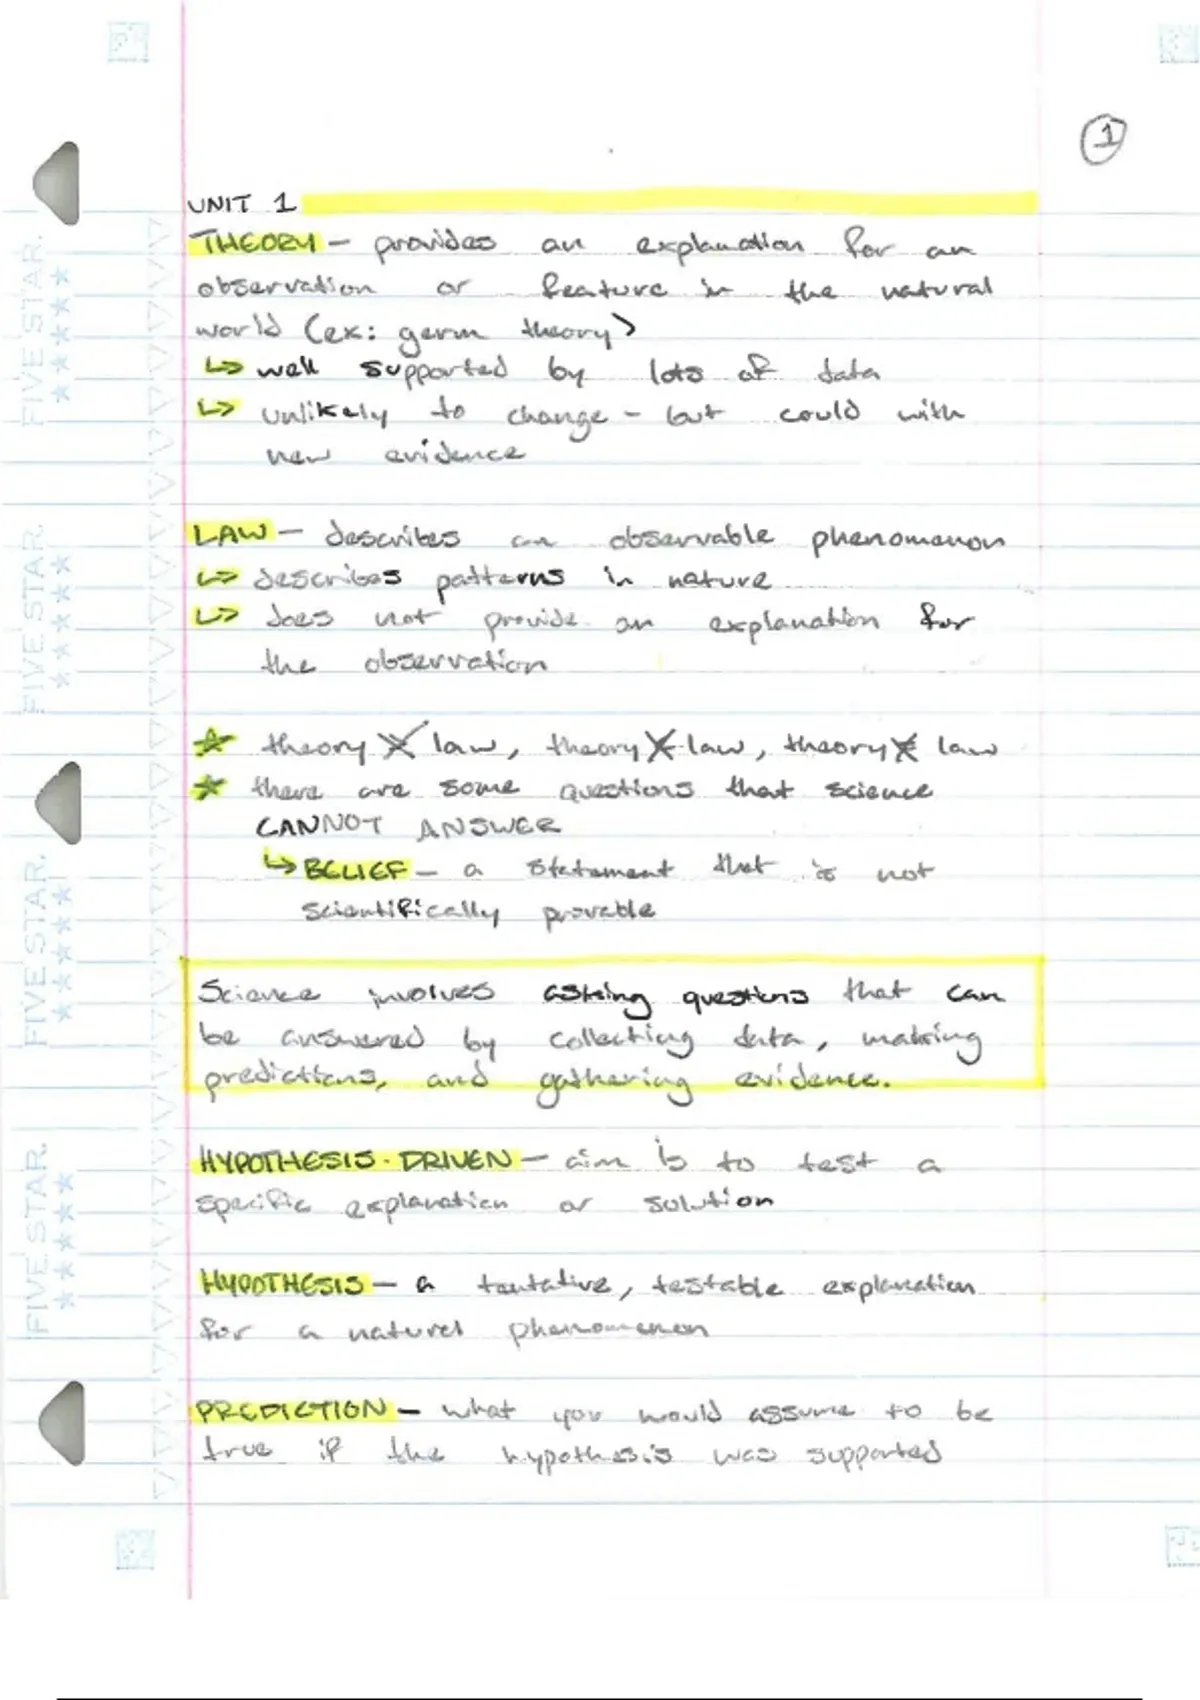 1
UNIT 1
THEORY - provides an explanation for an
observation or feature in the natural
world (ex: germ theory)
↳ well supported by lots of data
↳ unlikely to change - but could with
new evidence
LAW - describes an observable phenomenon
↳ describes patterns in nature
↳ does not provide an explanation for
the observation
☆ theory law, theory law, theory law
☆ there are some questions that science
CANNOT ANSWER
↳ BELIEF - a statement that is not
scientifically provable
Science involves asking questions that can
be answered by collecting data, making
predictions, and gathering evidence.
HYPOTHESIS-DRIVEN - aim is to test a
specific explanation or solution
HYPOTHESIS - a tentative, testable explanation
for a natural phenomenon
PREDICTION - what you would assume to be
true if the hypothesis was supported
FIVE STAR.
FIVE STAR.
FIVE STAR.
FIVE STAR.